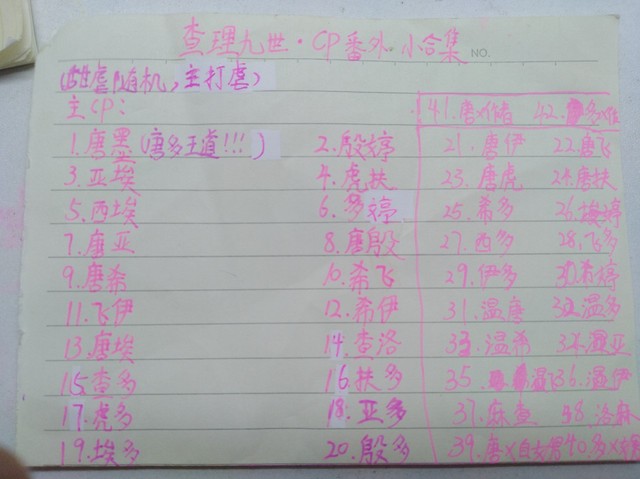 查理九世·CP番外小合集 NO.
(甜虐随机,主打虐)
主CP:
1.唐墨(唐多王道!!!) 2.殷婷
3.亚埃 4.虎扶
5.西埃 6.多婷
7.唐亚 8.唐殷
9.唐希 10.希飞
11.飞伊 12.希伊
13.唐埃 14.查洛
15.查多 16.扶多
17.虎多 18.亚多
19.埃多 20.殷多
41.唐×作者 42.多×作
21.唐伊 22.唐飞
23.唐虎 24.唐扶
25.希多 26.埃婷
27.西多 28.飞多
29.伊多 30.希婷
31.温唐 32.温多
33.温希 34.温亚
35.温 36.温伊
37.麻查 38.洛麻
39.唐×自 40.多×